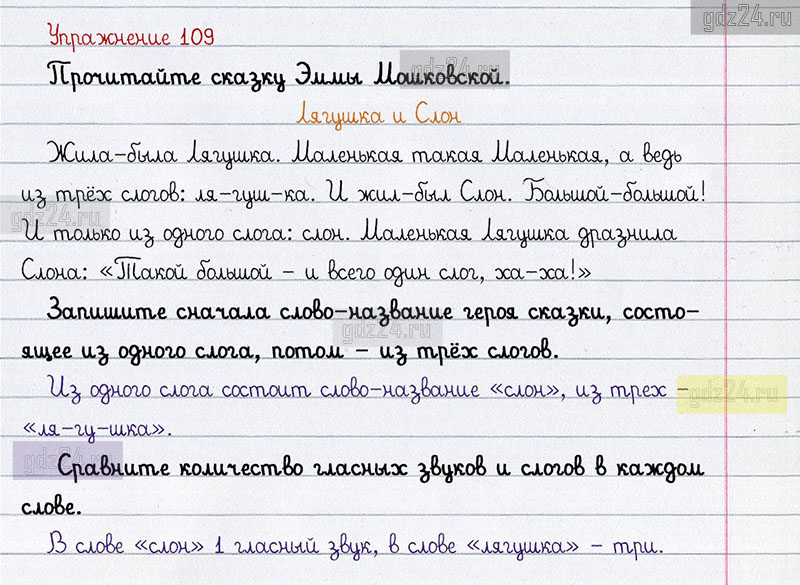 gdz24.ru
Упражнение 109
Прочитайте сказку Эммы Мошковской.
gdz24.ru
Лягушка и Слон
Жила-была Лягушка. Маленькая такая Маленькая, а ведь
из трёх слогов: ля-гуш-ка. И жил-был Слон. Большой-большой!
gdz24.ru
И только из одного слога: слон. Маленькая Лягушка дразнила
Слона: «Такой большой – и всего один слог, ха-ха!»
Запишите сначала слово-название героя сказки, состо-
gdz24.ru
ящее из одного слога, потом – из трёх слогов.
Из одного слога состоит слово-название «слон», из трех –
gdz24.ru
«ля-гу-шка».
gdz24.ru
Сравните количество гласных звуков и слогов в каждом
слове.
В слове «слон» 1 гласный звук, в слове «лягушка» – три.